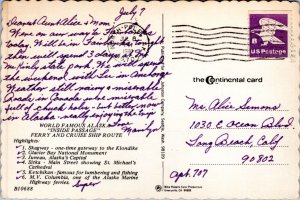 July 7
Dearest Aunt Alice & Mom,
We're on our way to Fairbanks
today. Will be in Fairbanks tonight
then will spend 3 days at Mt.
McKinley state park. We will spend
the weekend with Lee in Anchorage
Weather still rainy & miserable
Roads in Canada were miserable
full of chuck - but better now
in Alaska really enjoying the trip
Marilyn
WORLD FAMOUS ALASKA
"INSIDE PASSAGE"
FERRY AND CRUISE SHIP ROUTE
Highlights:
1. Skagway - one-time gateway to the Klondike
2. Glacier Bay National Monument
3. Juneau, Alaska's Capital
4. Sitka - Main street showing St. Michael's
Cathedral
5. Ketchikan - famous for lumbering and fishing
6. M.V. Columbia, one of the Alaska Marine
Highway ferries.
B10688
Super
US Postage
the Continental card
Mrs Alice Simons
1030 E Ocean Blvd.
Long Beach, Calif
90802
Apt. 707